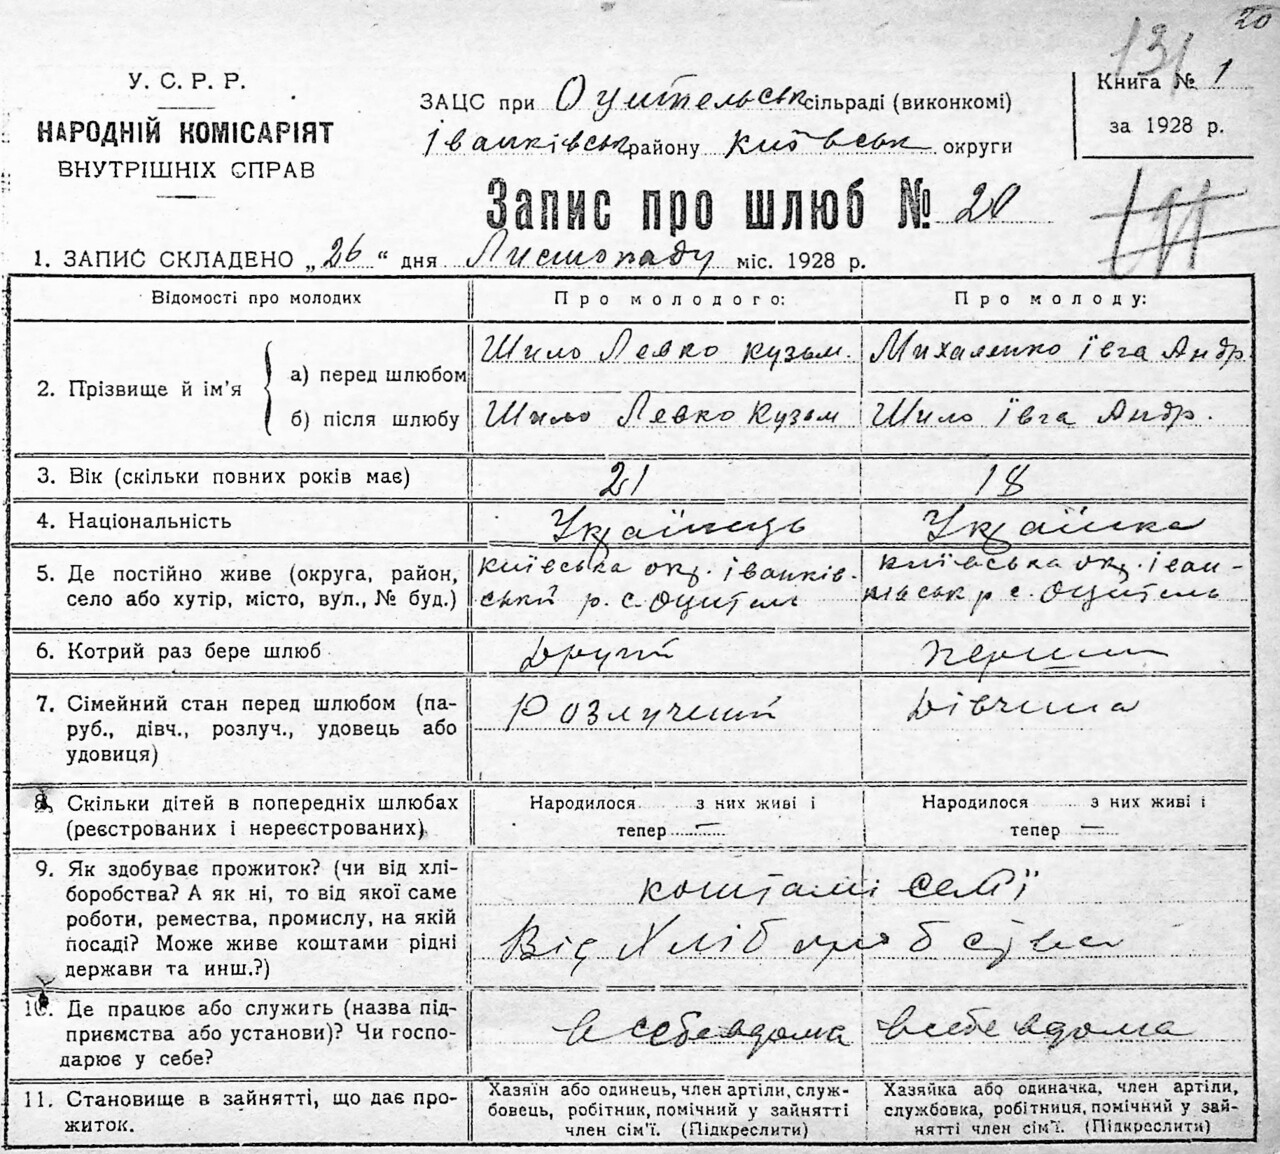 20
131
У. С. Р. Р.
НАРОДНІЙ КОМІСАРІЯТ
ВНУТРІШНІХ СПРАВ
ЗАЦС при Оцительськ сільраді (виконкомі)
Іванківськ району Київськ округи
Книга № 1
за 1928 р.
Запис про шлюб № 20
1. ЗАПИС СКЛАДЕНО „26“ дня Листопаду міс. 1928 р.
Відомості про молодих
Про молодого:
Про молоду:
2. Прізвище й ім'я
а) перед шлюбом
Шило Левко Кузьм.
Михаленко Ївга Андр.
б) після шлюбу
Шило Левко Кузьм
Шило Ївга Андр.
3. Вік (скільки повних років має)
21
18
4. Національність
Українець
Українка
5. Де постійно живе (округа, район,
село або хутір, місто, вул., № буд.)
Київська окр. іванків-
ський р. с. Оцитель
Київська окр. іван-
ківськ р с. Оцитель
6. Котрий раз бере шлюб
Другий
Перший
7. Сімейний стан перед шлюбом (па-
руб., дівч., розлуч., удовець або
удовиця)
Розлучений
Дівчина
8. Скільки дітей в попередніх шлюбах
(реєстрованих і нереєстрованих)
Народилося з них живі і
тепер —
Народилося з них живі і
тепер —
9. Як здобуває прожиток? (чи від хлі-
боробства? А як ні, то від якої саме
роботи, ремества, промислу, на якій
посаді? Може живе коштами рідні
держави та инш.?)
коштами семї
Від Хліборобства
10. Де працює або служить (назва під-
приємства або установи)? Чи госпо-
дарює у себе?
в себе вдома
в себе вдома
11. Становище в зайнятті, що дає про-
житок.
Хазяїн або одинець, член артіли, служ-
бовець, робітник, помічний у зайнятті
член сім'ї. (Підкреслити)
Хазяйка або одиначка, член артіли,
службовка, робітниця, помічний у зай-
нятті член сім'ї. (Підкреслити)